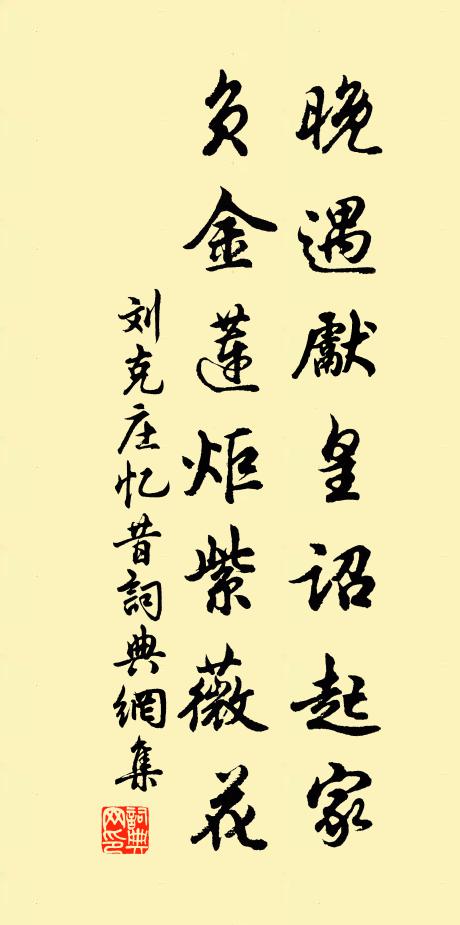 晚遇獻皇詔起家
負金蓮炬紫薇花
刘克庄忆昔詞典網集
詞典网印